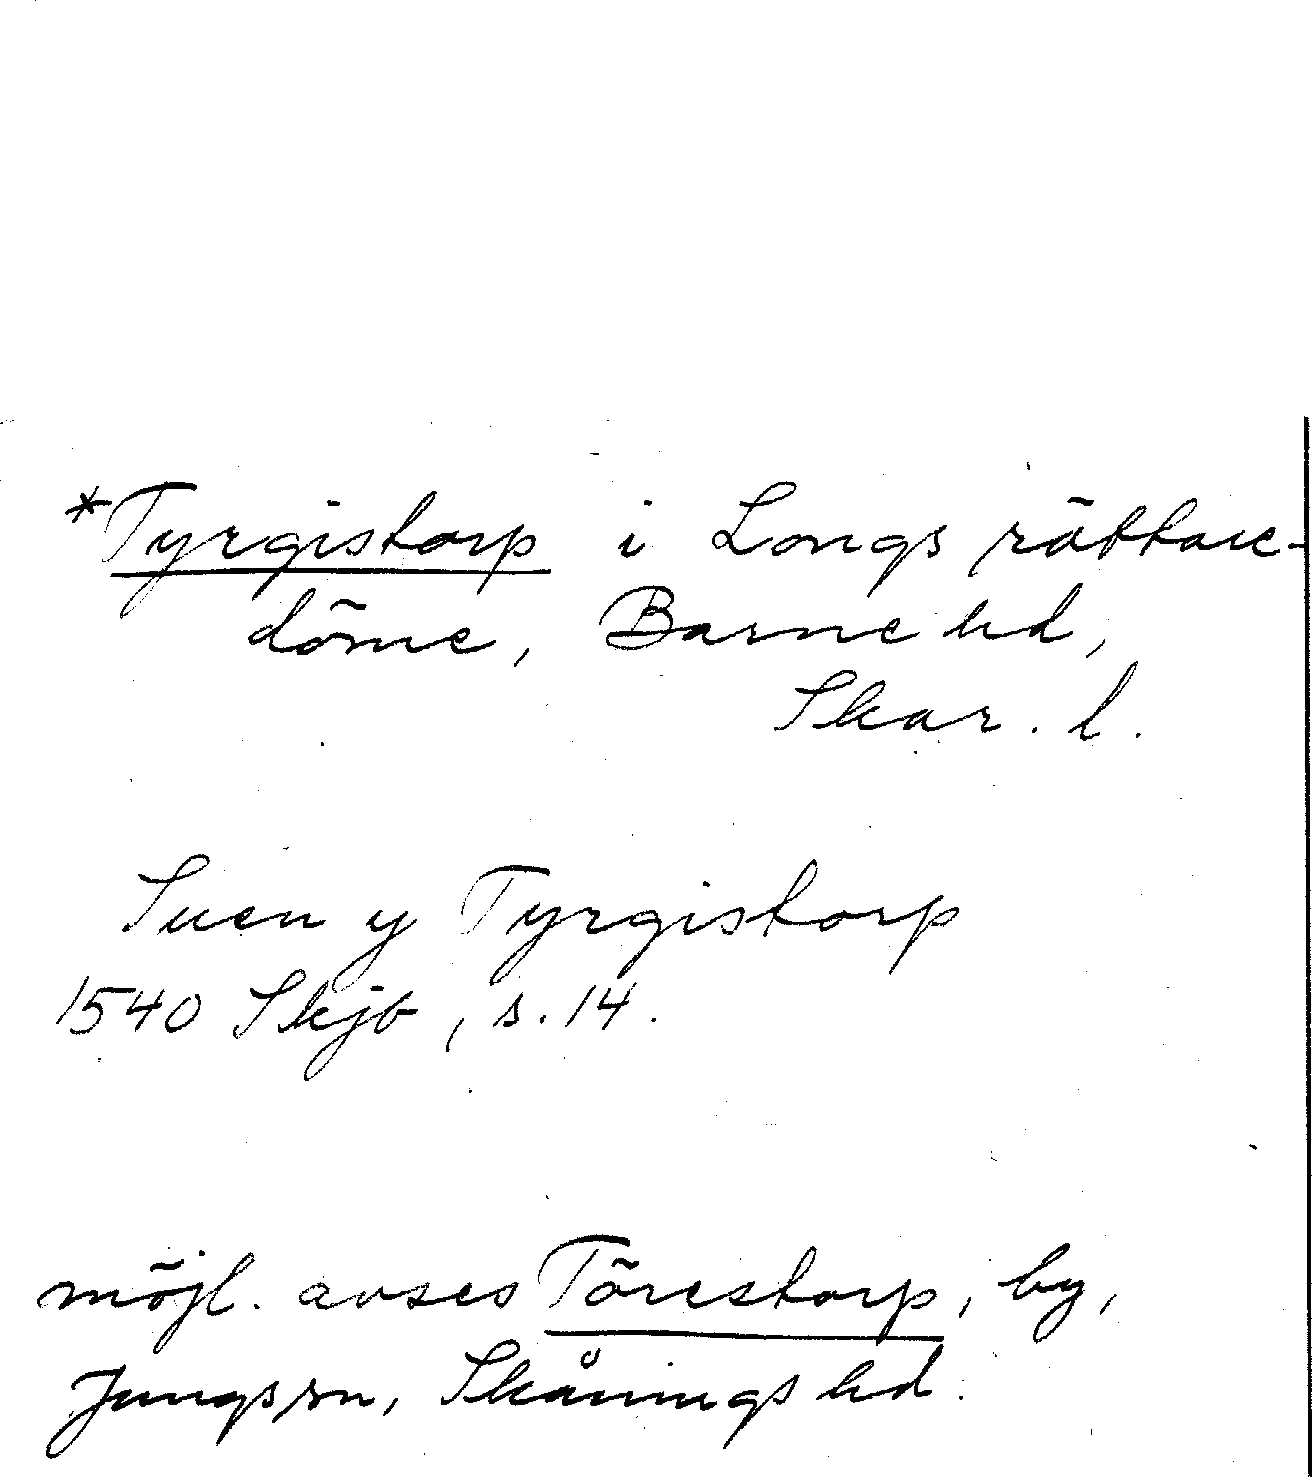 *Tyrgistorp i Longs rättare-
döme, Barne hd,
Skar. l.
Suen y Tyrgistorp
1540 Skjb, s. 14.
möjl. avses Törestorp, by,
Jungs sn, Skånings hd.